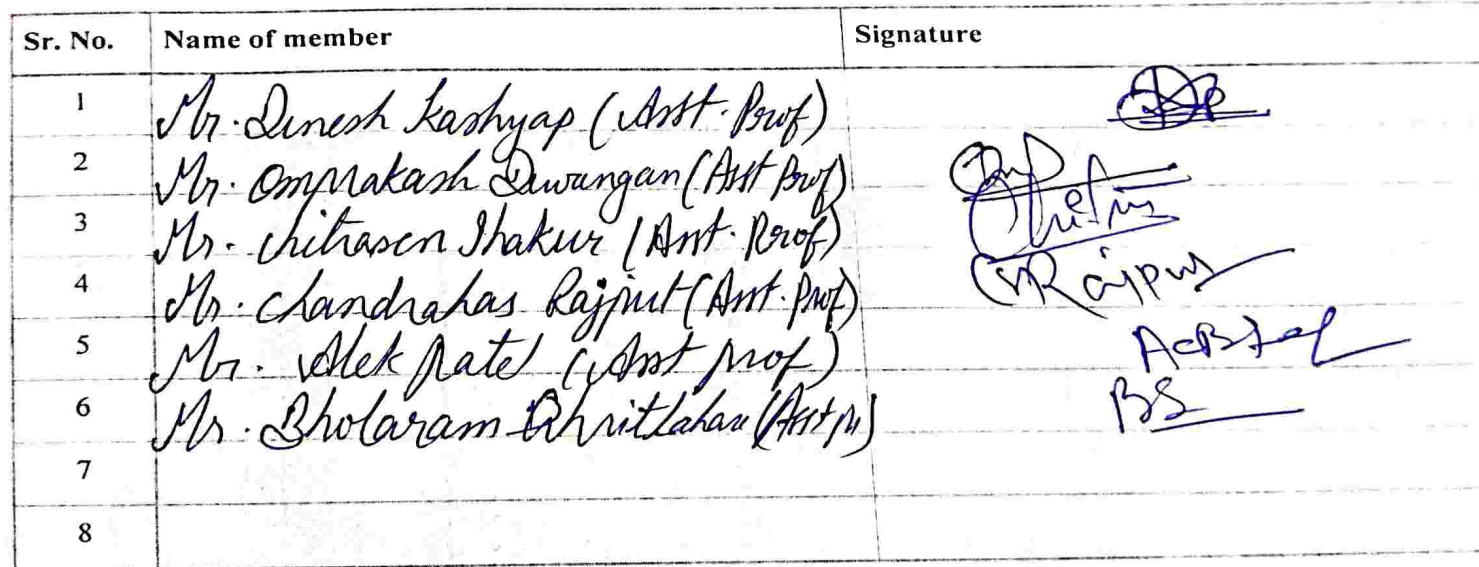 Sr. No. Name of member Signature
1 Mr. Dinesh Kashyap (Asst. Prof)
2 Mr. Omprakash Dewangan (Asst Prof)
3 Mr. Chitrasen Thakur (Asst. Prof)
4 Mr. Chandrahas Rajput (Asst. Prof) Rajput
5 Mr. Patel (Asst Prof)
6 Mr. Bholaram (Asst Pr) BS
7
8